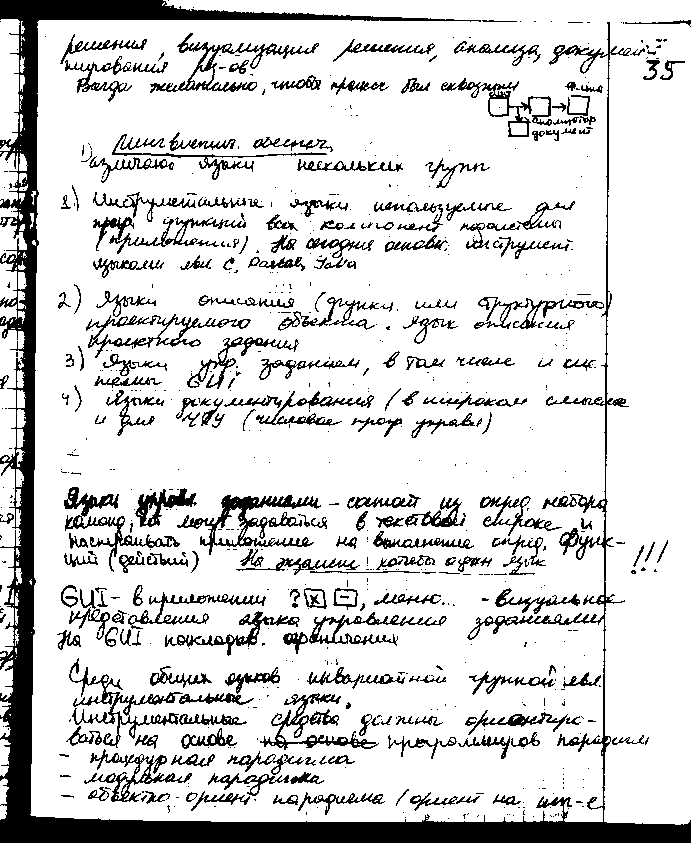 решения, визуализация решения, анализа, докумен
тирования рез-ов.
Всегда желательно, чтобы процесс был сквозным
35
анализатор
документ
Лингвистич. обеспеч.
1) Различают языки нескольких групп
1) Инструментальные языки используемые для
прогр. функций всех компонент подсистемы
(приложения). На сегодня основн. инструмент.
языками явл C, Pascal, Java
2) Языки описания (функц. или структурного)
проектируемого объекта. Язык описания
проектного задания
3) Языки упр. заданием, в том числе и сис-
темы GUI
4) Языки документирования (в широком смысле
и для ЧПУ (числовое прогр управл)
Языки управл заданиями – состоит из опред набора
команд, кот могут задаваться в текстовой строке и
настраивать приложение на выполнение опред. функ-
ций (действий) На экзамене хотябы один язык
!!!
GUI - в приложении ? x –, меню... - визуальное
представления языка управления заданиями
На GUI накладыв. ограничения
Среди общих языков инвариатной группой явл
инструментальные языки.
Инструментальные средства должны ориентиро-
ваться на основе на основе программиров парадигм
– процедурная парадигма
– модульная парадигма
– объектно ориент парадигма (ориент на